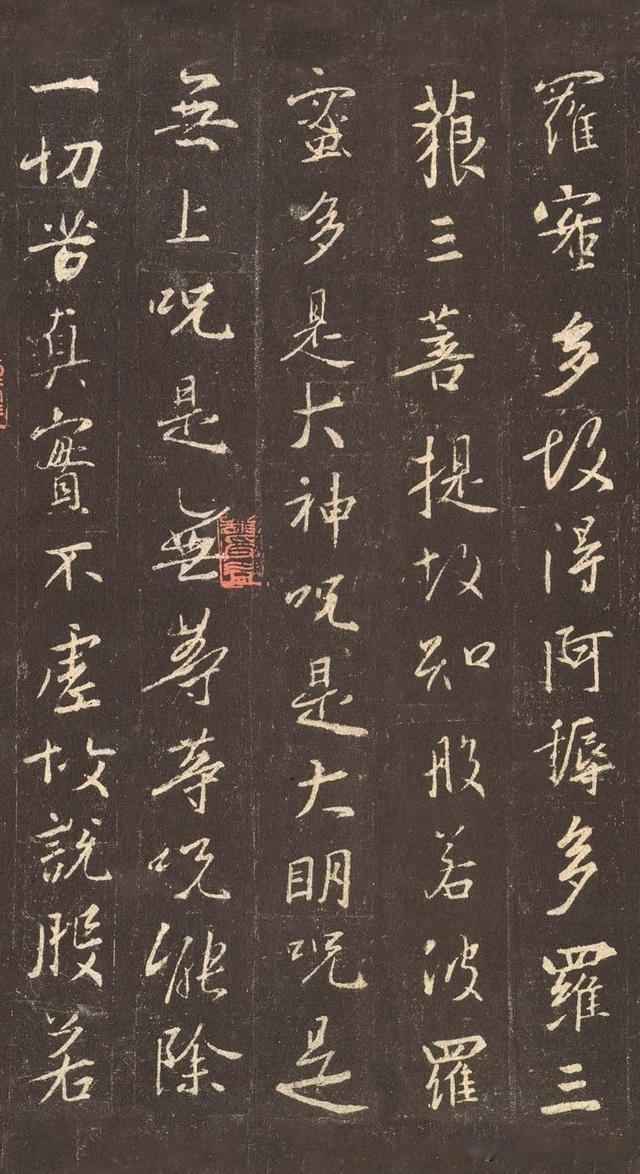 羅蜜多故得阿耨多羅三
藐三菩提故知般若波羅
蜜多是大神呪是大明呪是
無上呪是無等等呪能除
一切苦真實不虛故說般若